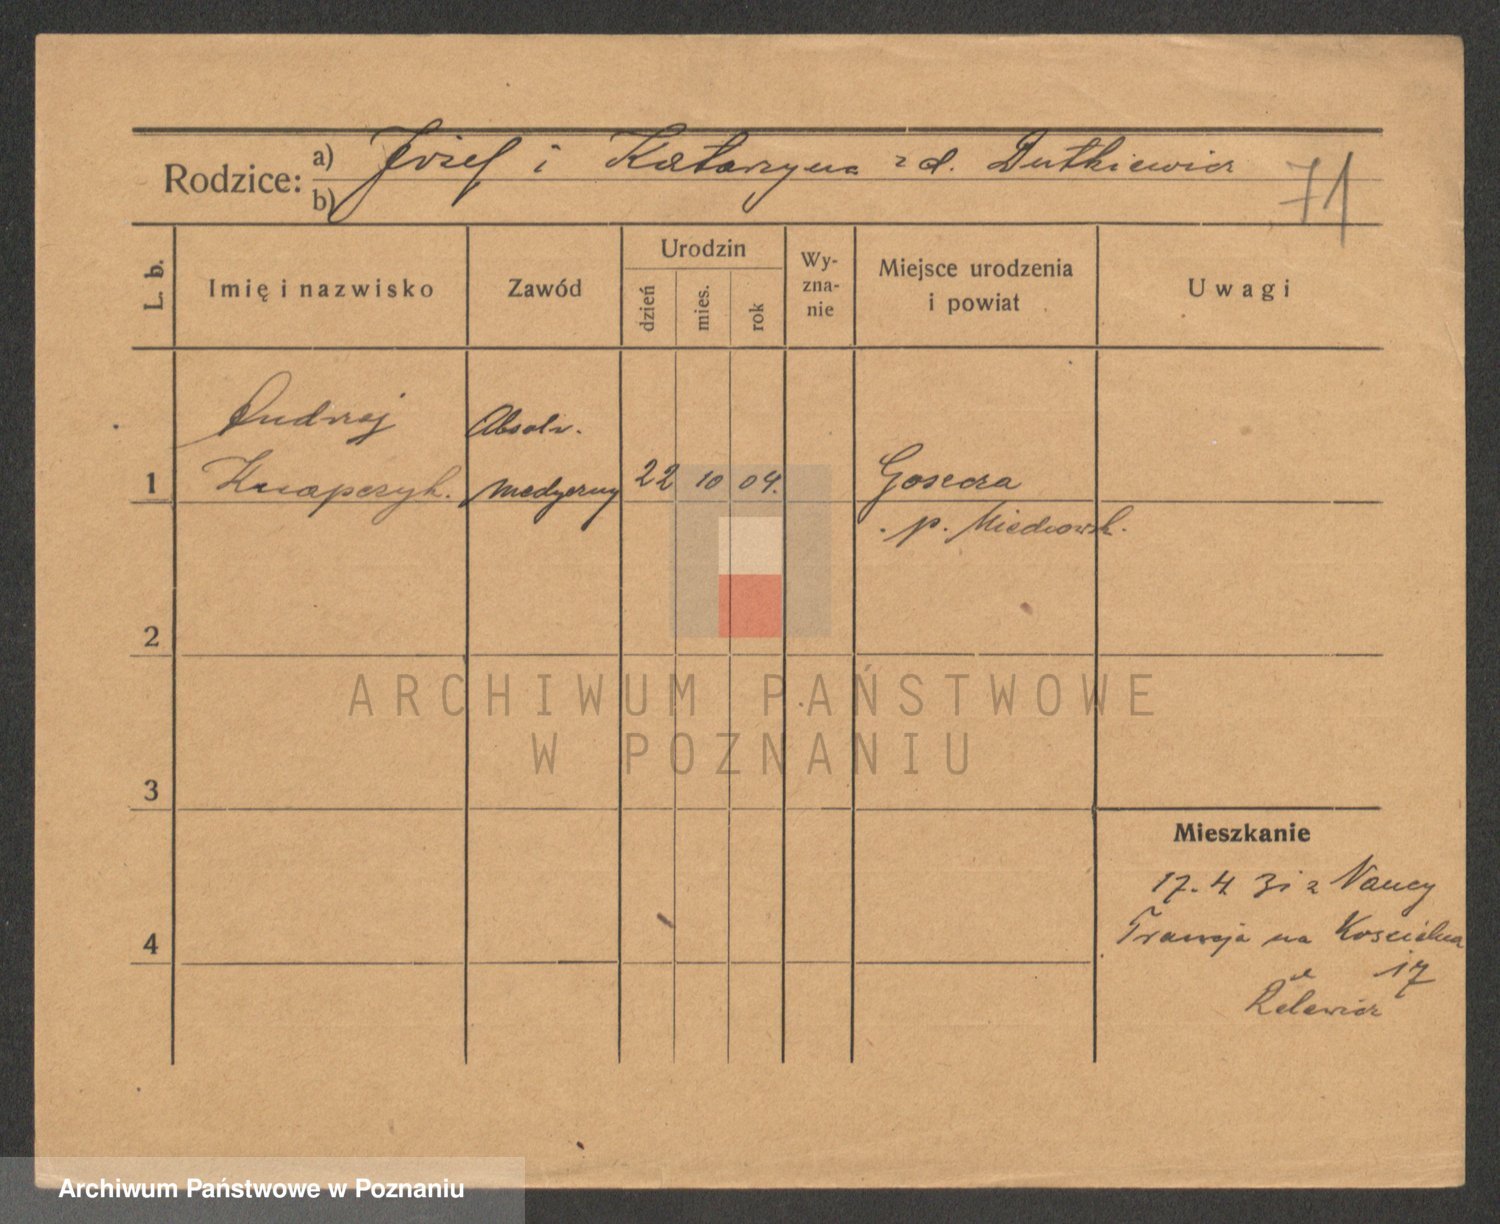 Rodzice: a) Józef i Katarzyna z d. Dutkiewicz
b)
71
L. b.
Imię i nazwisko
Zawód
Urodzin
dzień
mies.
rok
Wy-
zna-
nie
Miejsce urodzenia
i powiat
Uwagi
Andrzej
Absolw.
1
Knapczyk.
medycyny
22 10 04.
p.
2
ARCHIWUM PAŃSTWOWE
W POZNANIU
3
Mieszkanie
17. 4 31 z Nancy
Francja na Kościelna
4
17
u
Archiwum Państwowe w Poznaniu